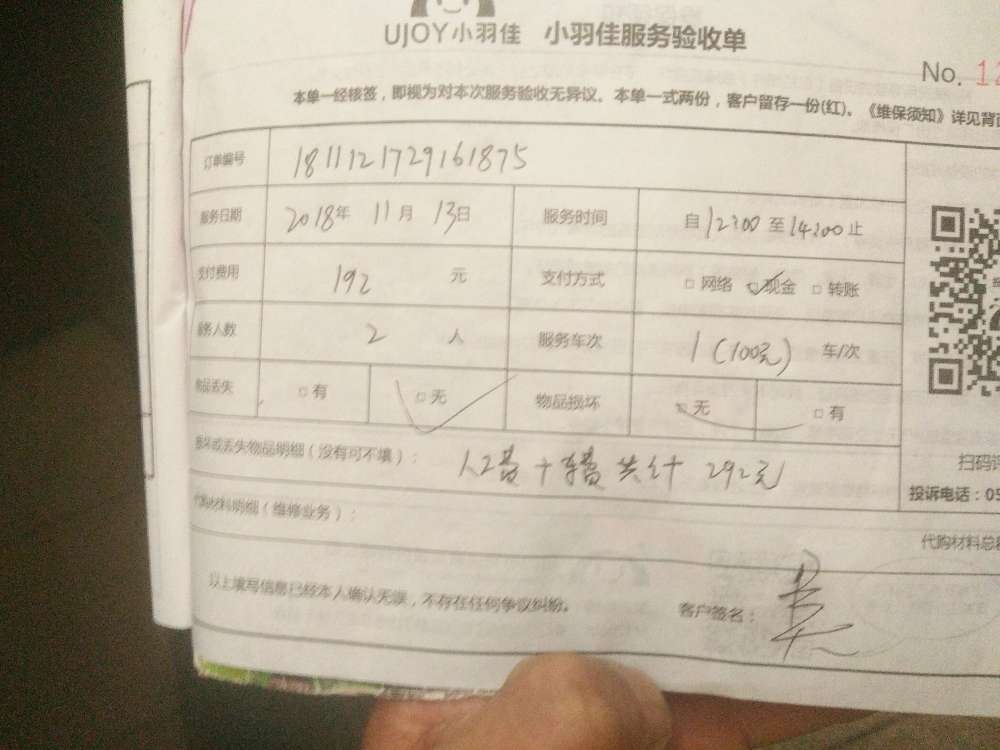 UJOY小羽佳 小羽佳服务验收单
No. 11
本单一经核签，即视为对本次服务验收无异议。本单一式两份，客户留存一份(红)。《维保须知》详见背面
订单编号 1811121729161875
服务日期 2018年 11月 13日 服务时间 自12:00至14:00止
支付费用 192 元 支付方式 □网络 ☑现金 □转账
服务人数 2 人 服务车次 1(100元) 车/次
物品丢失 □有 ☑无 物品损坏 ☑无 □有
损坏或丢失物品明细（没有可不填）： 人工费+车费 共计 292元
扫码评
投诉电话：05
代购材料明细（维修业务）：
代购材料总额
以上填写信息已经本人确认无误，不存在任何争议纠纷。 客户签名：